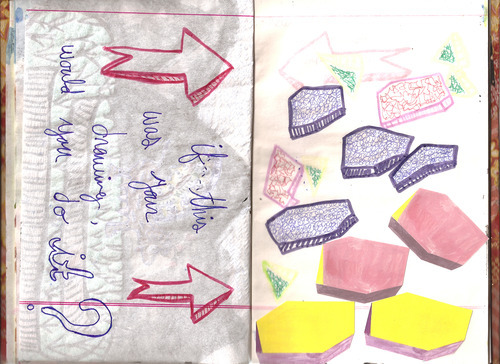 if this
was your
drawing,
would you do it?